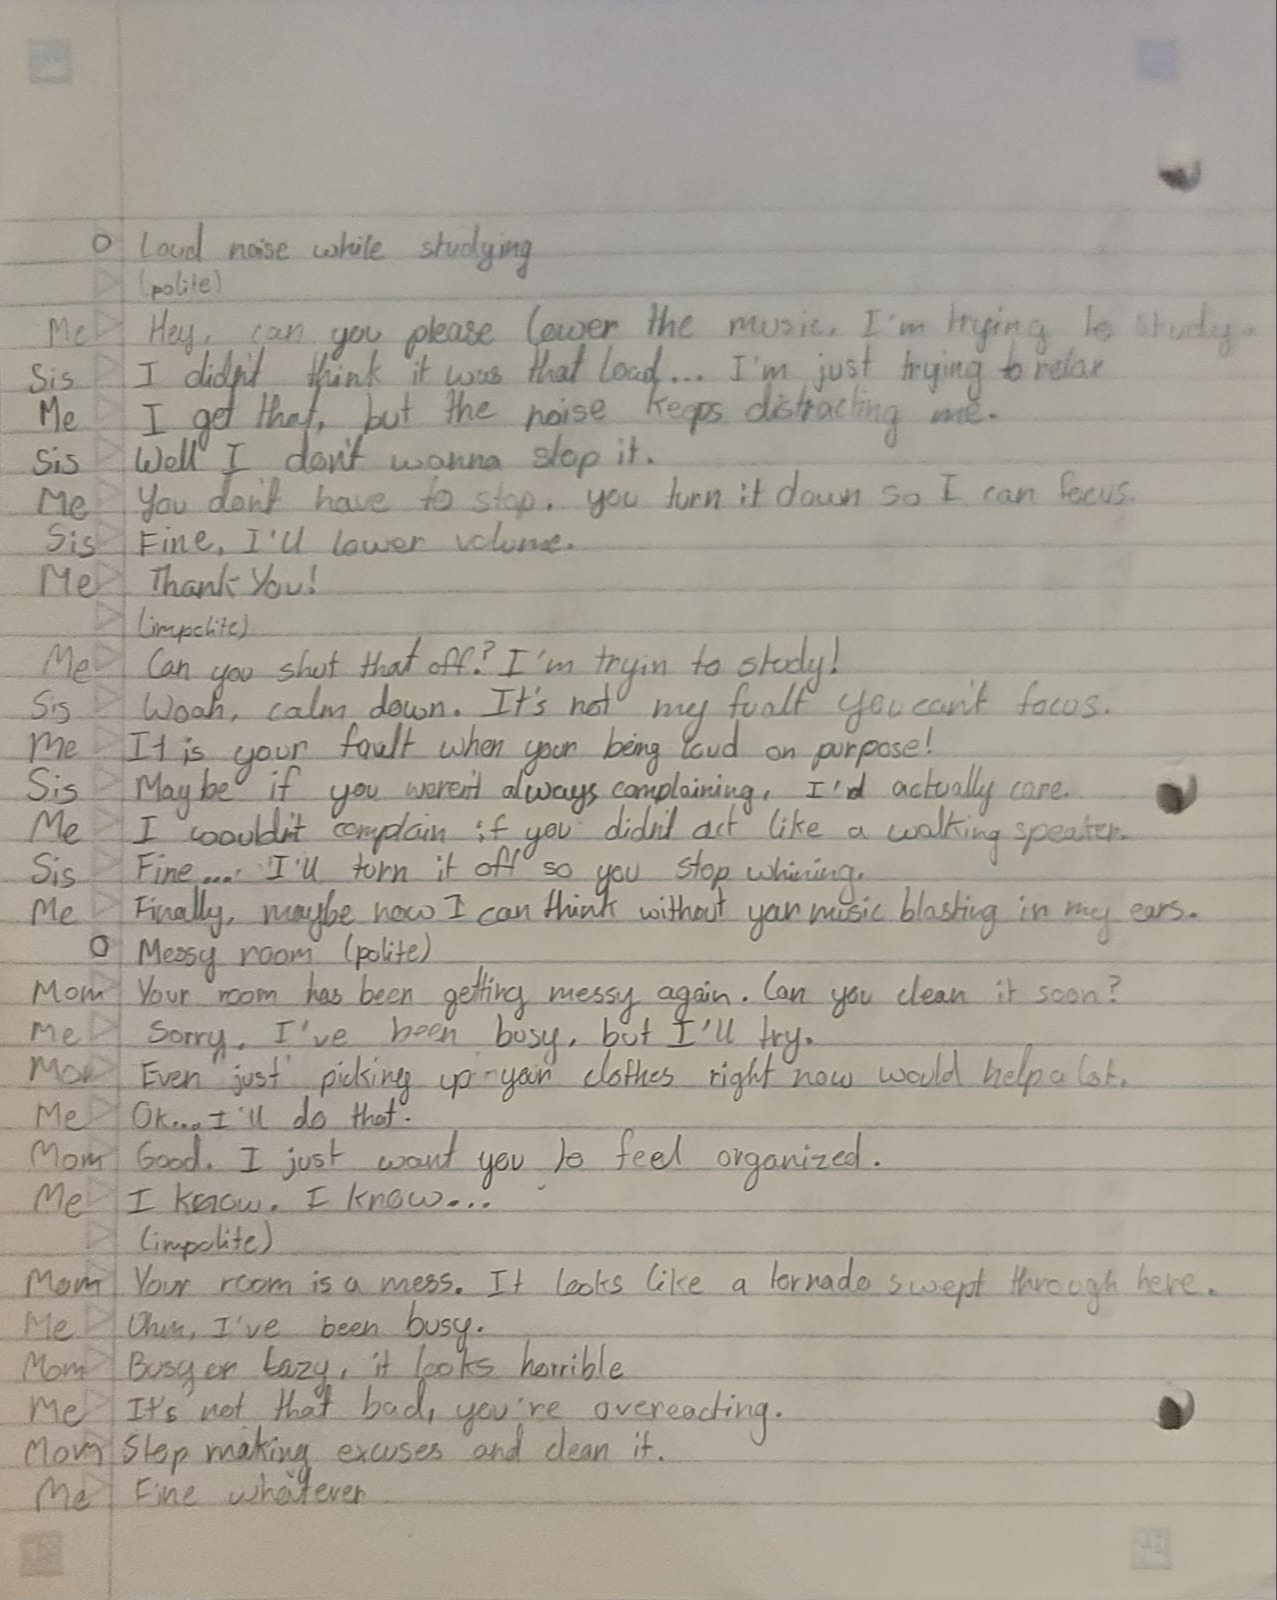 o Loud noise while studying
(polite)
Me Hey, can you please lower the music. I'm trying to study.
Sis I didn't think it was that loud... I'm just trying to relax
Me I get that, but the noise keeps distracting me.
Sis Well I don't wanna stop it.
Me You don't have to stop. you turn it down so I can focus.
Sis Fine, I'll lower volume.
Me Thank You!
(impolite)
Me Can you shut that off? I'm tryin to study!
Sis Woah, calm down. It's not my fualt you can't focus.
Me It is your fault when your being loud on purpose!
Sis Maybe if you weren't always complaining, I'd actually care.
Me I wouldn't complain if you didn't act like a walking speaker.
Sis Fine.... I'll turn it off so you stop whining.
Me Finally, maybe now I can think without your music blasting in my ears.
o Messy room (polite)
Mom Your room has been getting messy again. Can you clean it soon?
Me Sorry, I've been busy, but I'll try.
Mom Even just picking up your clothes right now would help a lot.
Me Ok... I'll do that.
Mom Good. I just want you to feel organized.
Me I know. I know...
(impolite)
Mom Your room is a mess. It looks like a tornado swept through here.
Me Uhm, I've been busy.
Mom Busy or Lazy, it looks horrible
Me It's not that bad, you're overeacting.
Mom Stop making excuses and clean it.
Me Fine whatever